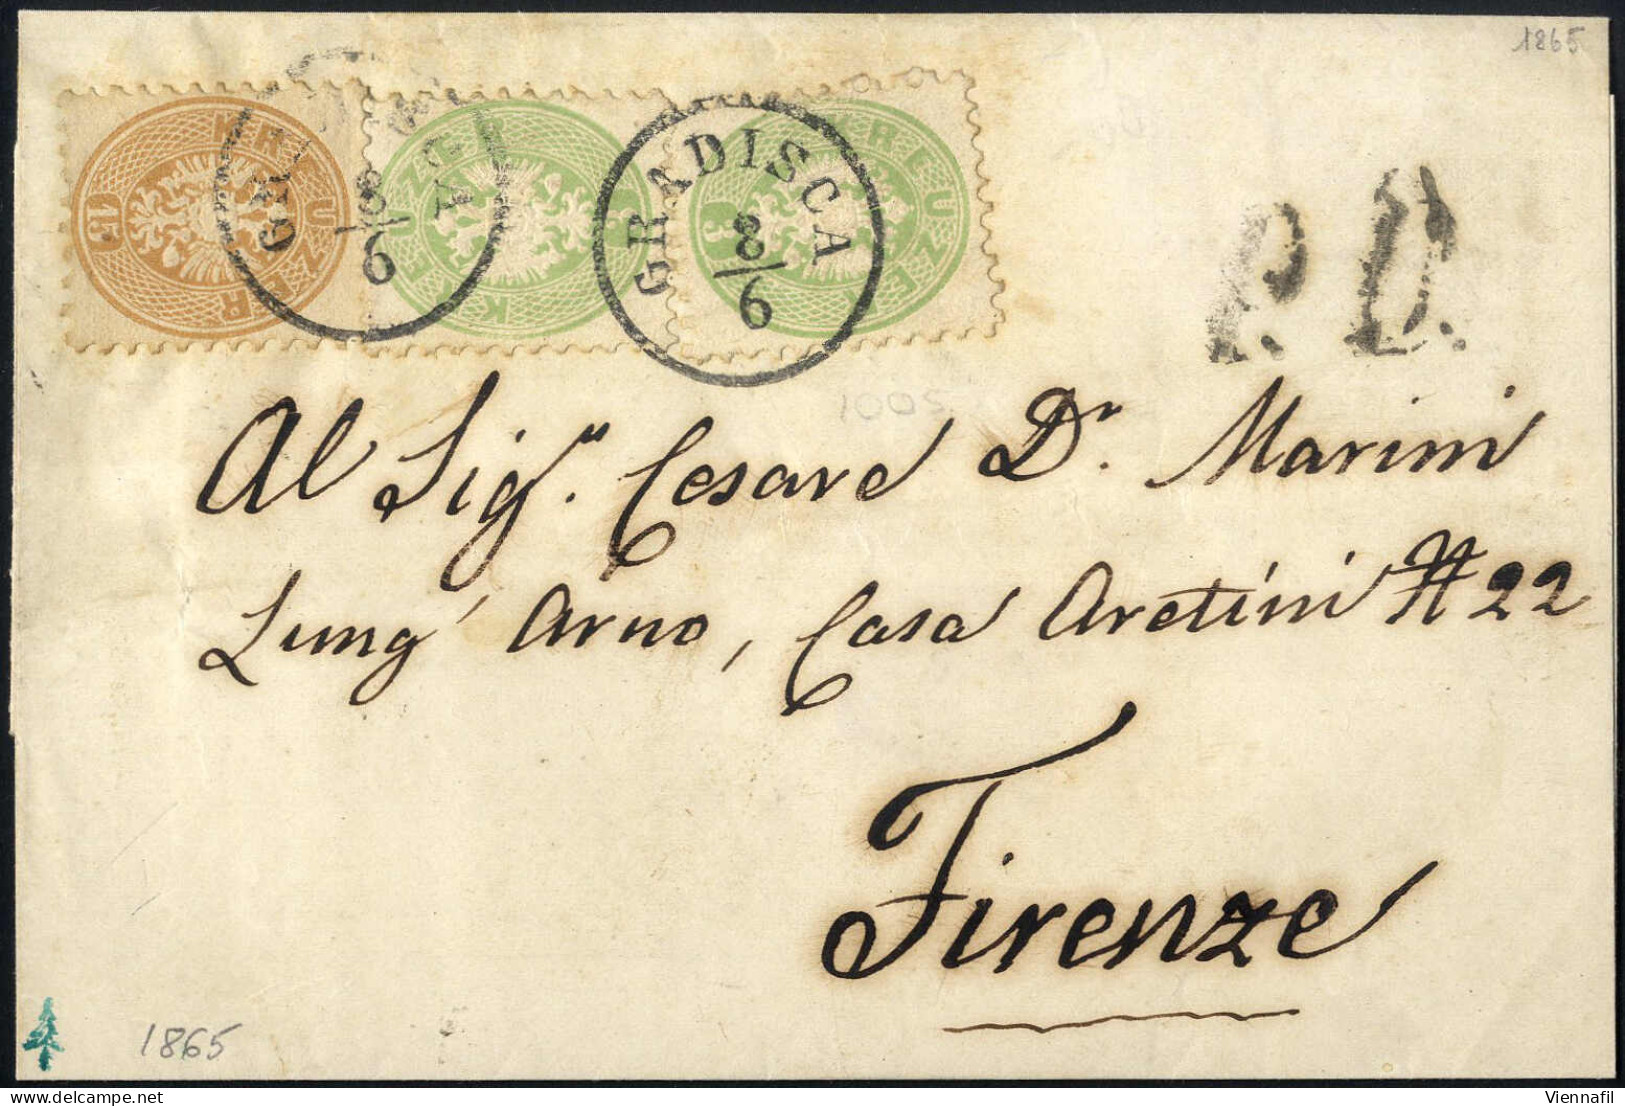 1865
15 KREUZER
KREUZER
3 KREUZER
GRADISCA
8/6
GRADISCA
8/6
P.D.
1005
Al Sig.r Cesare Dr. Marini
Lung' Arno, Casa Aretini # 22
Firenze
1865
Viennafil